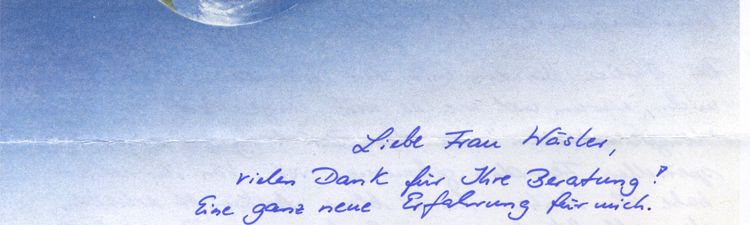 Liebe Frau Wäsler,
vielen Dank für Ihre Beratung!
Eine ganz neue Erfahrung für mich.